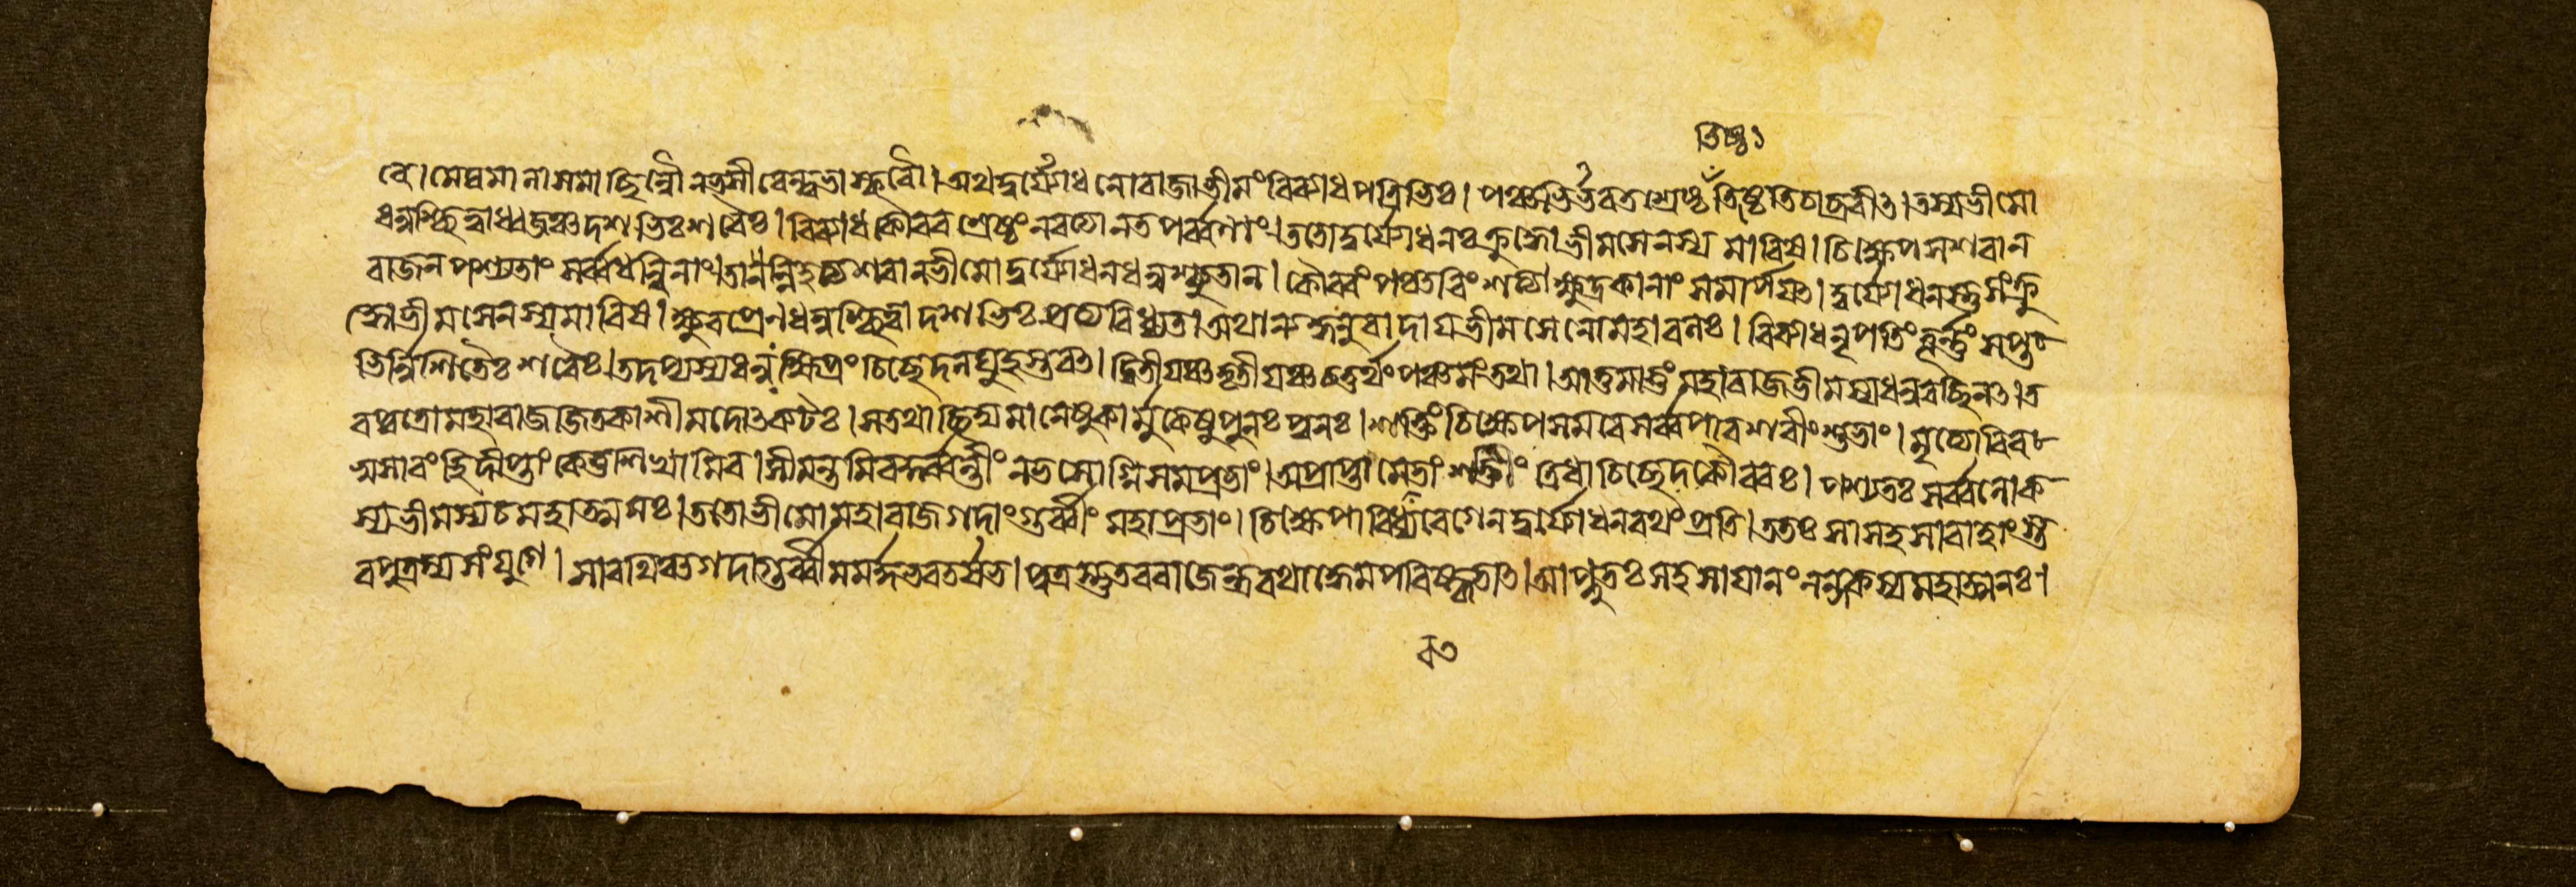 তিষ্ঠ১
বে।মেঘমানাসমাছিন্নৌনভসীবেন্দ্রভাস্করৌ।অথদুর্যোধনোবাজাভীমংবিব্যাধপত্রিভিঃ।পঞ্চভির্ভবতশ্রেষ্ঠতিষ্ঠতিচাব্রবীৎ।তস্যভীমো
ধনুশ্ছিত্বাধ্বজঞ্চদশভিঃশবৈঃ।বিব্যাধকৌববশ্রেষ্ঠংনবত্যানতপর্ব্বণাং।ততোদুর্যোধনঃক্রুদ্ধোভীমসেনস্যমাবিষ।চিক্ষেপসশবান
বাজনপশ্যতাংসর্ব্বধন্বিনাং।তাননিহত্যশবানভীমোদুর্যোধনধনুশ্চ্যুতান।কৌববংপঞ্চবিংশত্যাক্ষুদ্রকানাংসমার্পযৎ।দুর্যোধনস্তুসংক্রু
দ্ধোভীমসেনস্যমাবিষ।ক্ষুবপ্রেনধনুশ্ছিত্বাদশভিঃপ্রত্যবিধ্যত।অথান্যদ্ধনুবাদাযভীমসেনোমহাবলঃ।বিব্যাধনৃপতিংতূর্ন্নংসপ্ত৮
ভির্নিশিতৈঃশবৈঃ।তদপ্যস্যধনুঃক্ষিপ্রংচিছেদলঘুহস্তবৎ।দ্বিতীযঞ্চতৃতীযঞ্চচতুর্থংপঞ্চমংতথা।আত্তমাত্তংমহাবাজভীমস্যধনুবছিনৎ।ত
বপুত্রোমহাবাজজিতকাশীমদোৎকটঃ।সতথাছিদ্যমানেষুকার্মুকেষুপুনঃপুনঃ।শক্তিংচিক্ষেপসমবেসর্ব্বপাবশবীংশুভাং।মৃত্যোবিব৮
স্বসাবংহিদীপ্তাংকেতুশিখামিব।সীমন্তমিবকুর্ব্বন্তীংনভসোগ্নিসমপ্রভাং।অপ্রাপ্তামেতাংশক্তীংত্রিধাচিছেদকৌববঃ।পশ্যতঃসর্ব্বলোক
স্যভীমস্যচমহাত্মনঃ।ততোভীমোমহাবাজগদাংগুর্ব্বীংমহাপ্রভাং।চিক্ষেপাবিধ্যবেগেনদুর্যোধনবথংপ্রতি।ততঃসাসহসাবাহাংস্ত
বপুত্রস্যসংযুগে।সাবথিঞ্চগদাগুর্ব্বীমমর্দ্দভবতর্ষভ।পুত্রস্তুতববাজেন্দ্রবথাদ্ধেমপবিষ্কৃতাৎ।আপ্লুতঃসহসাযানংনন্দকস্যমহাত্মনঃ।